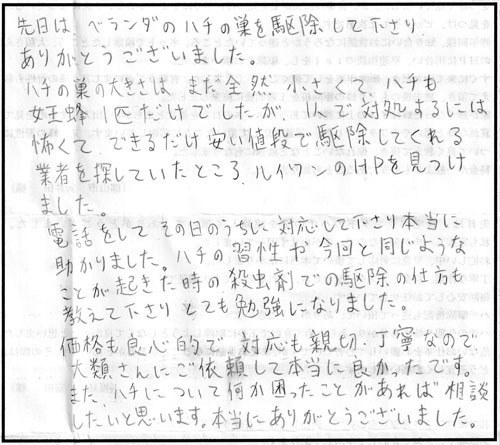 先日は、ベランダのハチの巣を駆除して下さり、
ありがとうございました。
ハチの巣の大きさは、まだ全然小さくて、ハチも
女王蜂1匹だけでしたが、1人で対処するには
怖くて、できるだけ安い値段で駆除してくれる
業者を探していたところ、ハイワンのHPを見つけ
ました。
電話をして、その日のうちに対応して下さり本当に
助かりました。ハチの習性や今回と同じような
ことが起きた時の殺虫剤での駆除の仕方も
教えて下さり、とても勉強になりました。
価格も良心的で、対応も親切、丁寧なので
大類さんにご依頼して本当に良かったです。
また、ハチについて何か困ったことがあれば相談
したいと思います。本当にありがとうございました。